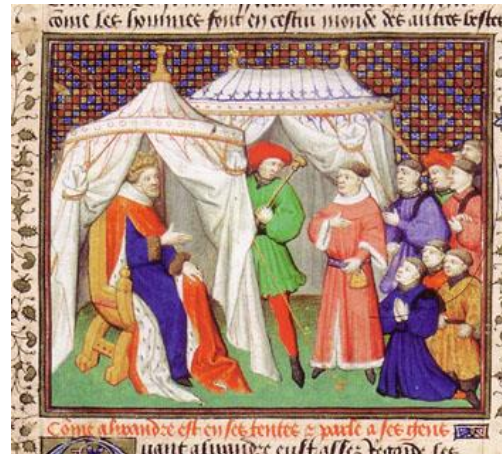 cõme les hommes font en cestui monde des autres bestes
Cõme alixandre est en ses tentes & parle a ses gens
Quant alixandre eust asses regarde les